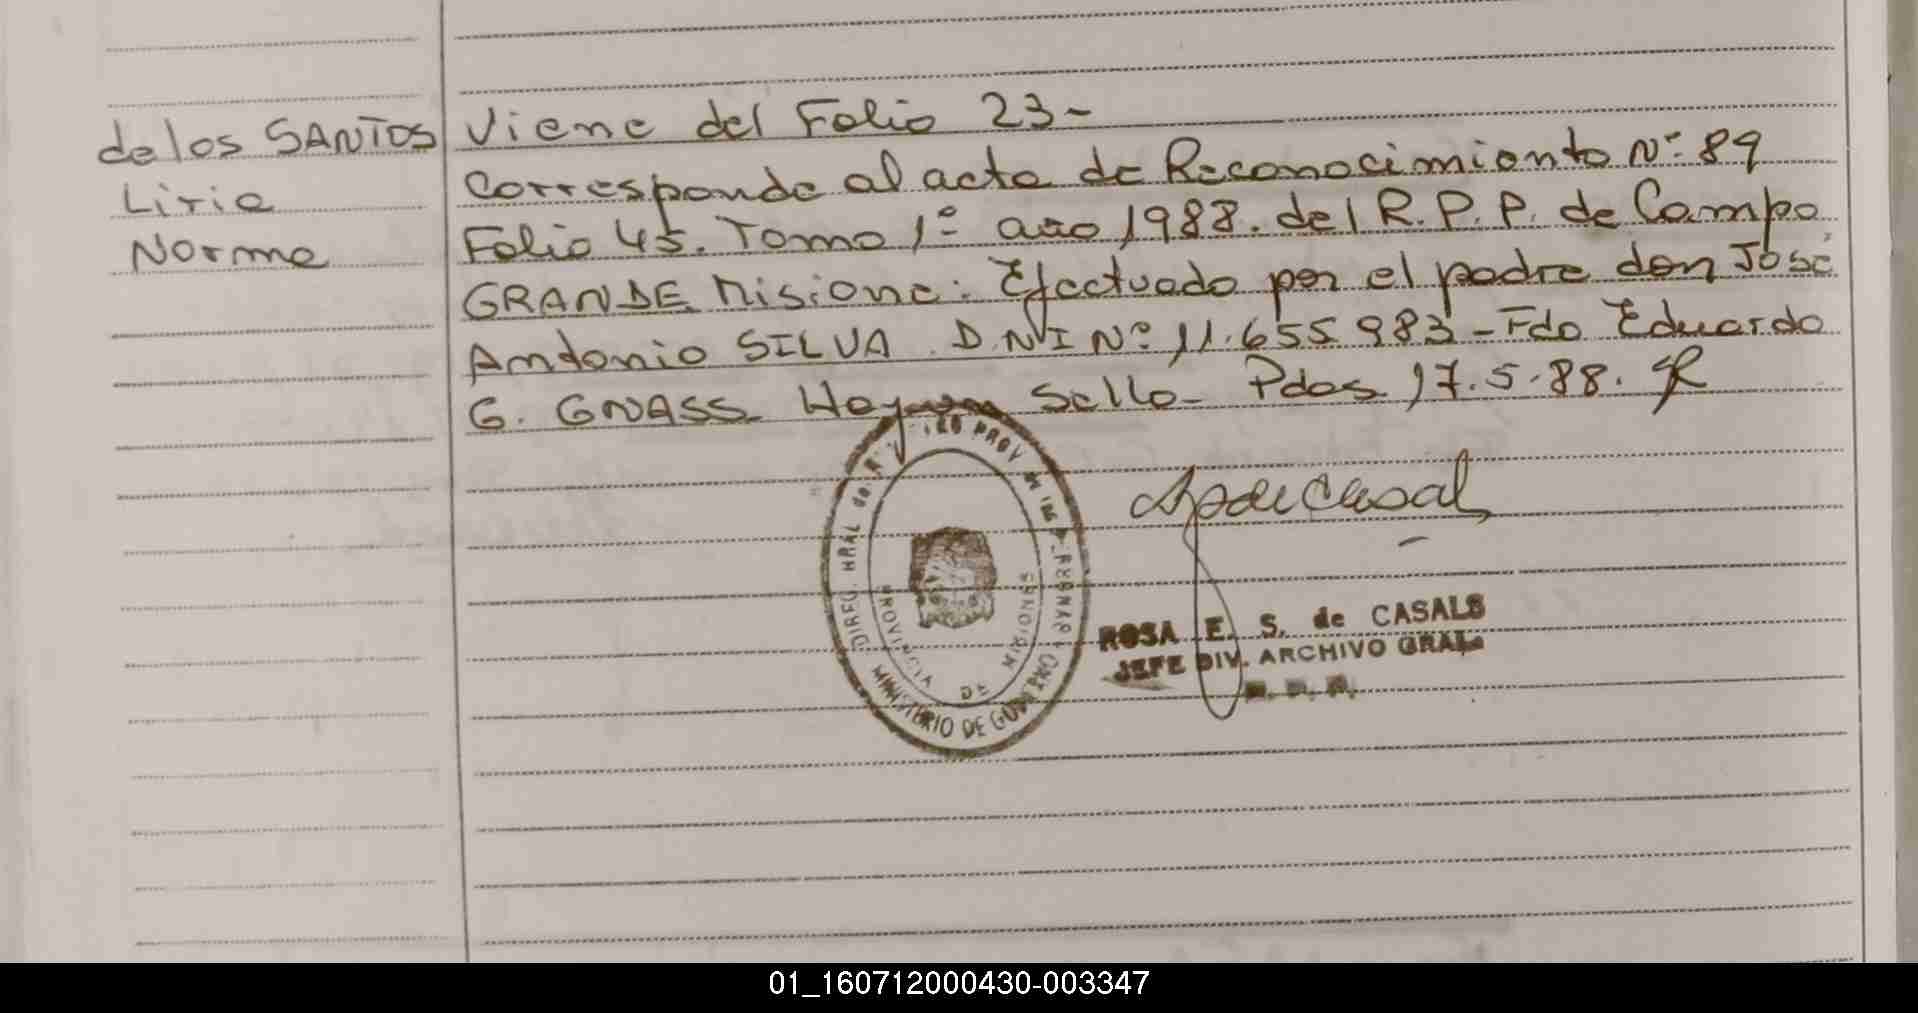 de los SANTOS
Liria
Norma
Viene del Folio 23-
Corresponde al acta de Reconocimiento Nº 89
Folio 45. Tomo 1º año 1988. del R.P.P. de Campo
GRANDE Misiones. Efectuado por el padre don José
Antonio SILVA D.N.I Nº 11.655.983 - Fdo Eduardo
G. GNASS. Hay un Sello - Pdas 17.5.88.
DIREC. GRAL de
PROV
MINISTERIO DE GOBIERNO
PROVINCIA DE MISIONES
ROSA E. S. de CASALS
JEFE DIV. ARCHIVO GRAL
01_160712000430-003347